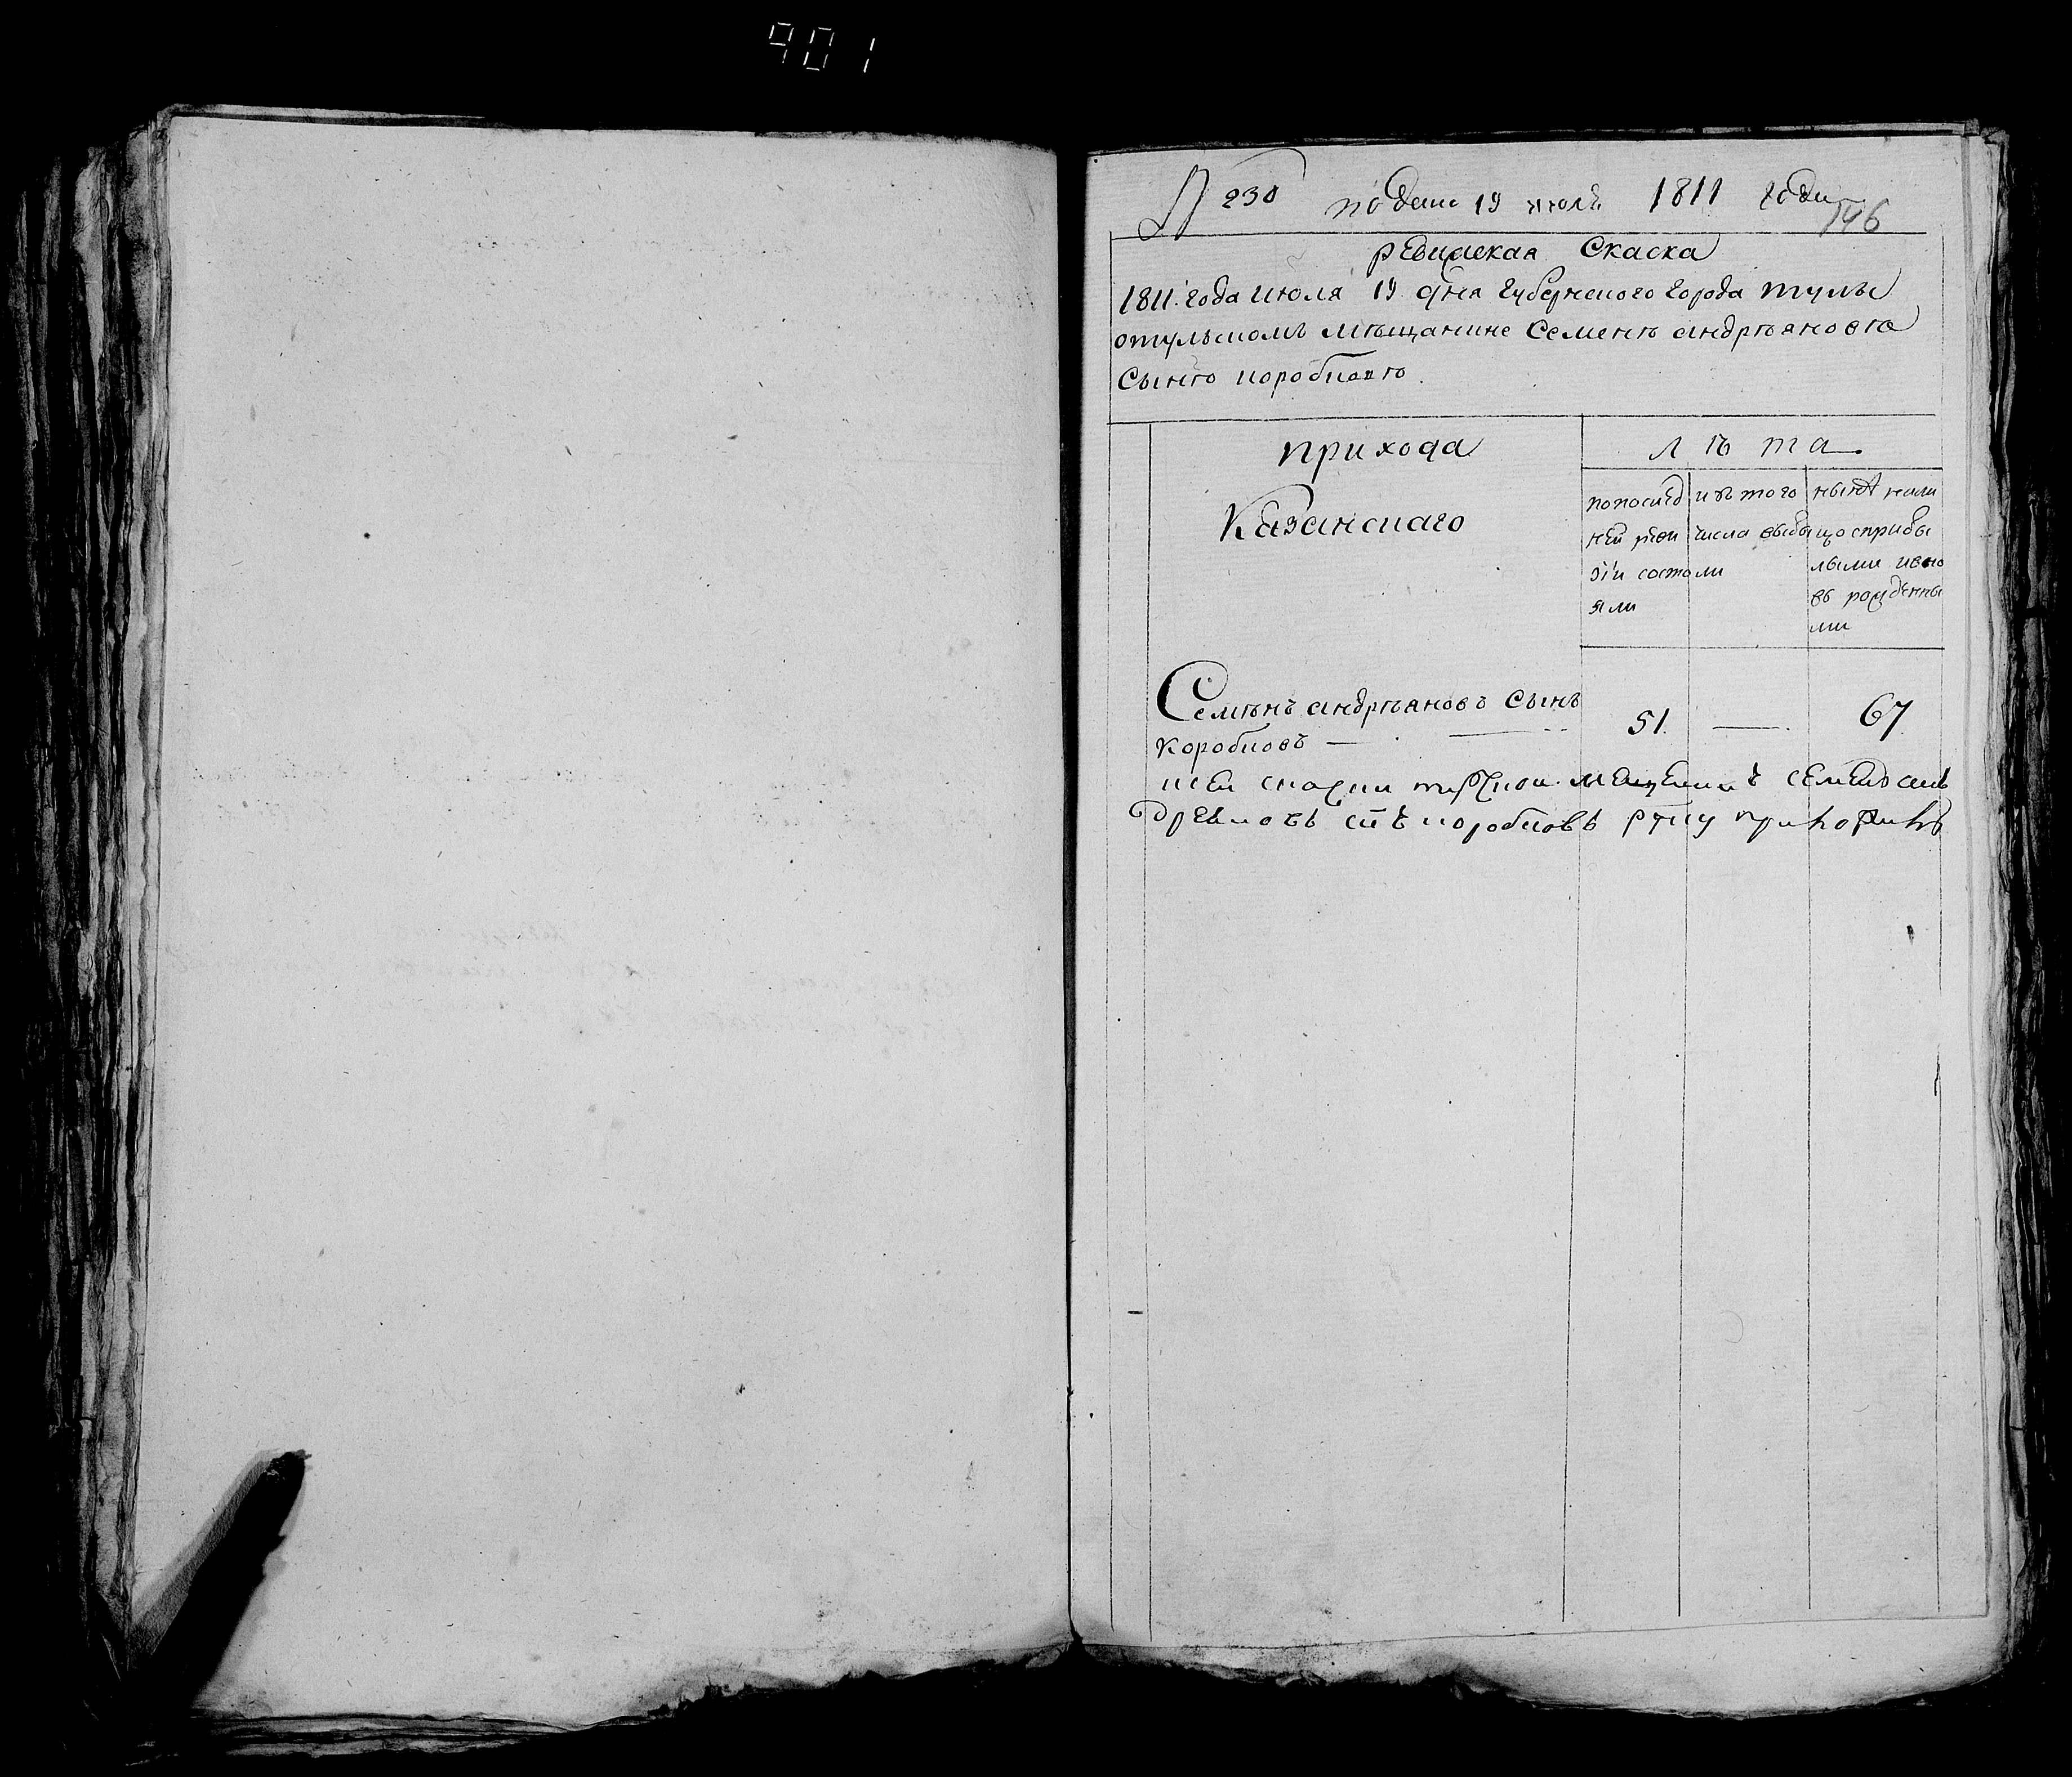 901
№ 230 подана 19 июля 1811 года
146
ревиская Скаска
1811. года июля 19 дня губернского города тулы
отульскомъ мѣщанине Семенѣ андрѣяновѣ
Сынѣ коробковѣ
прихода
Казанскаго
лѣта
попослѣд
ней реви
зiи состо
яли
изъ того
числа выбы
ли
нынѣ нали
цо сприбы
лыми ивно
въ рожденны
ми
Семѣнъ андрѣяновъ Сынъ
коробковъ — 51. — 67
ксей скаски мещенинъ семенъ анъ
дреяновъ снъ коробковъ руку приложилъ